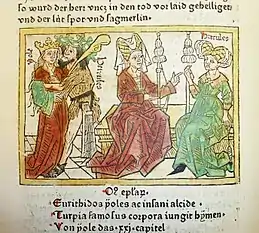 so ward der hercz vncz in den tod vor laid gehelliget
vnd der lüt spor vnd sagmerlin.
yole
Hercules
Hercules
Eurithidos yoles ac insani alcide
Turpia famosus corpora iungit hymen
Von yole das .xxi. capitel